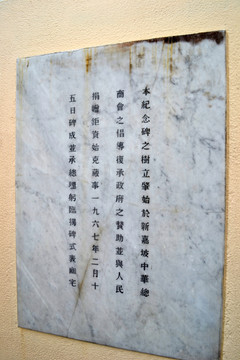 本紀念碑之樹立肇始於新嘉坡中華總
商會之倡導復承政府之贊助並與人民
捐贈鉅資始克蕆事一九六七年二月十
五日碑成並承總理躬臨揭碑式義兩宅